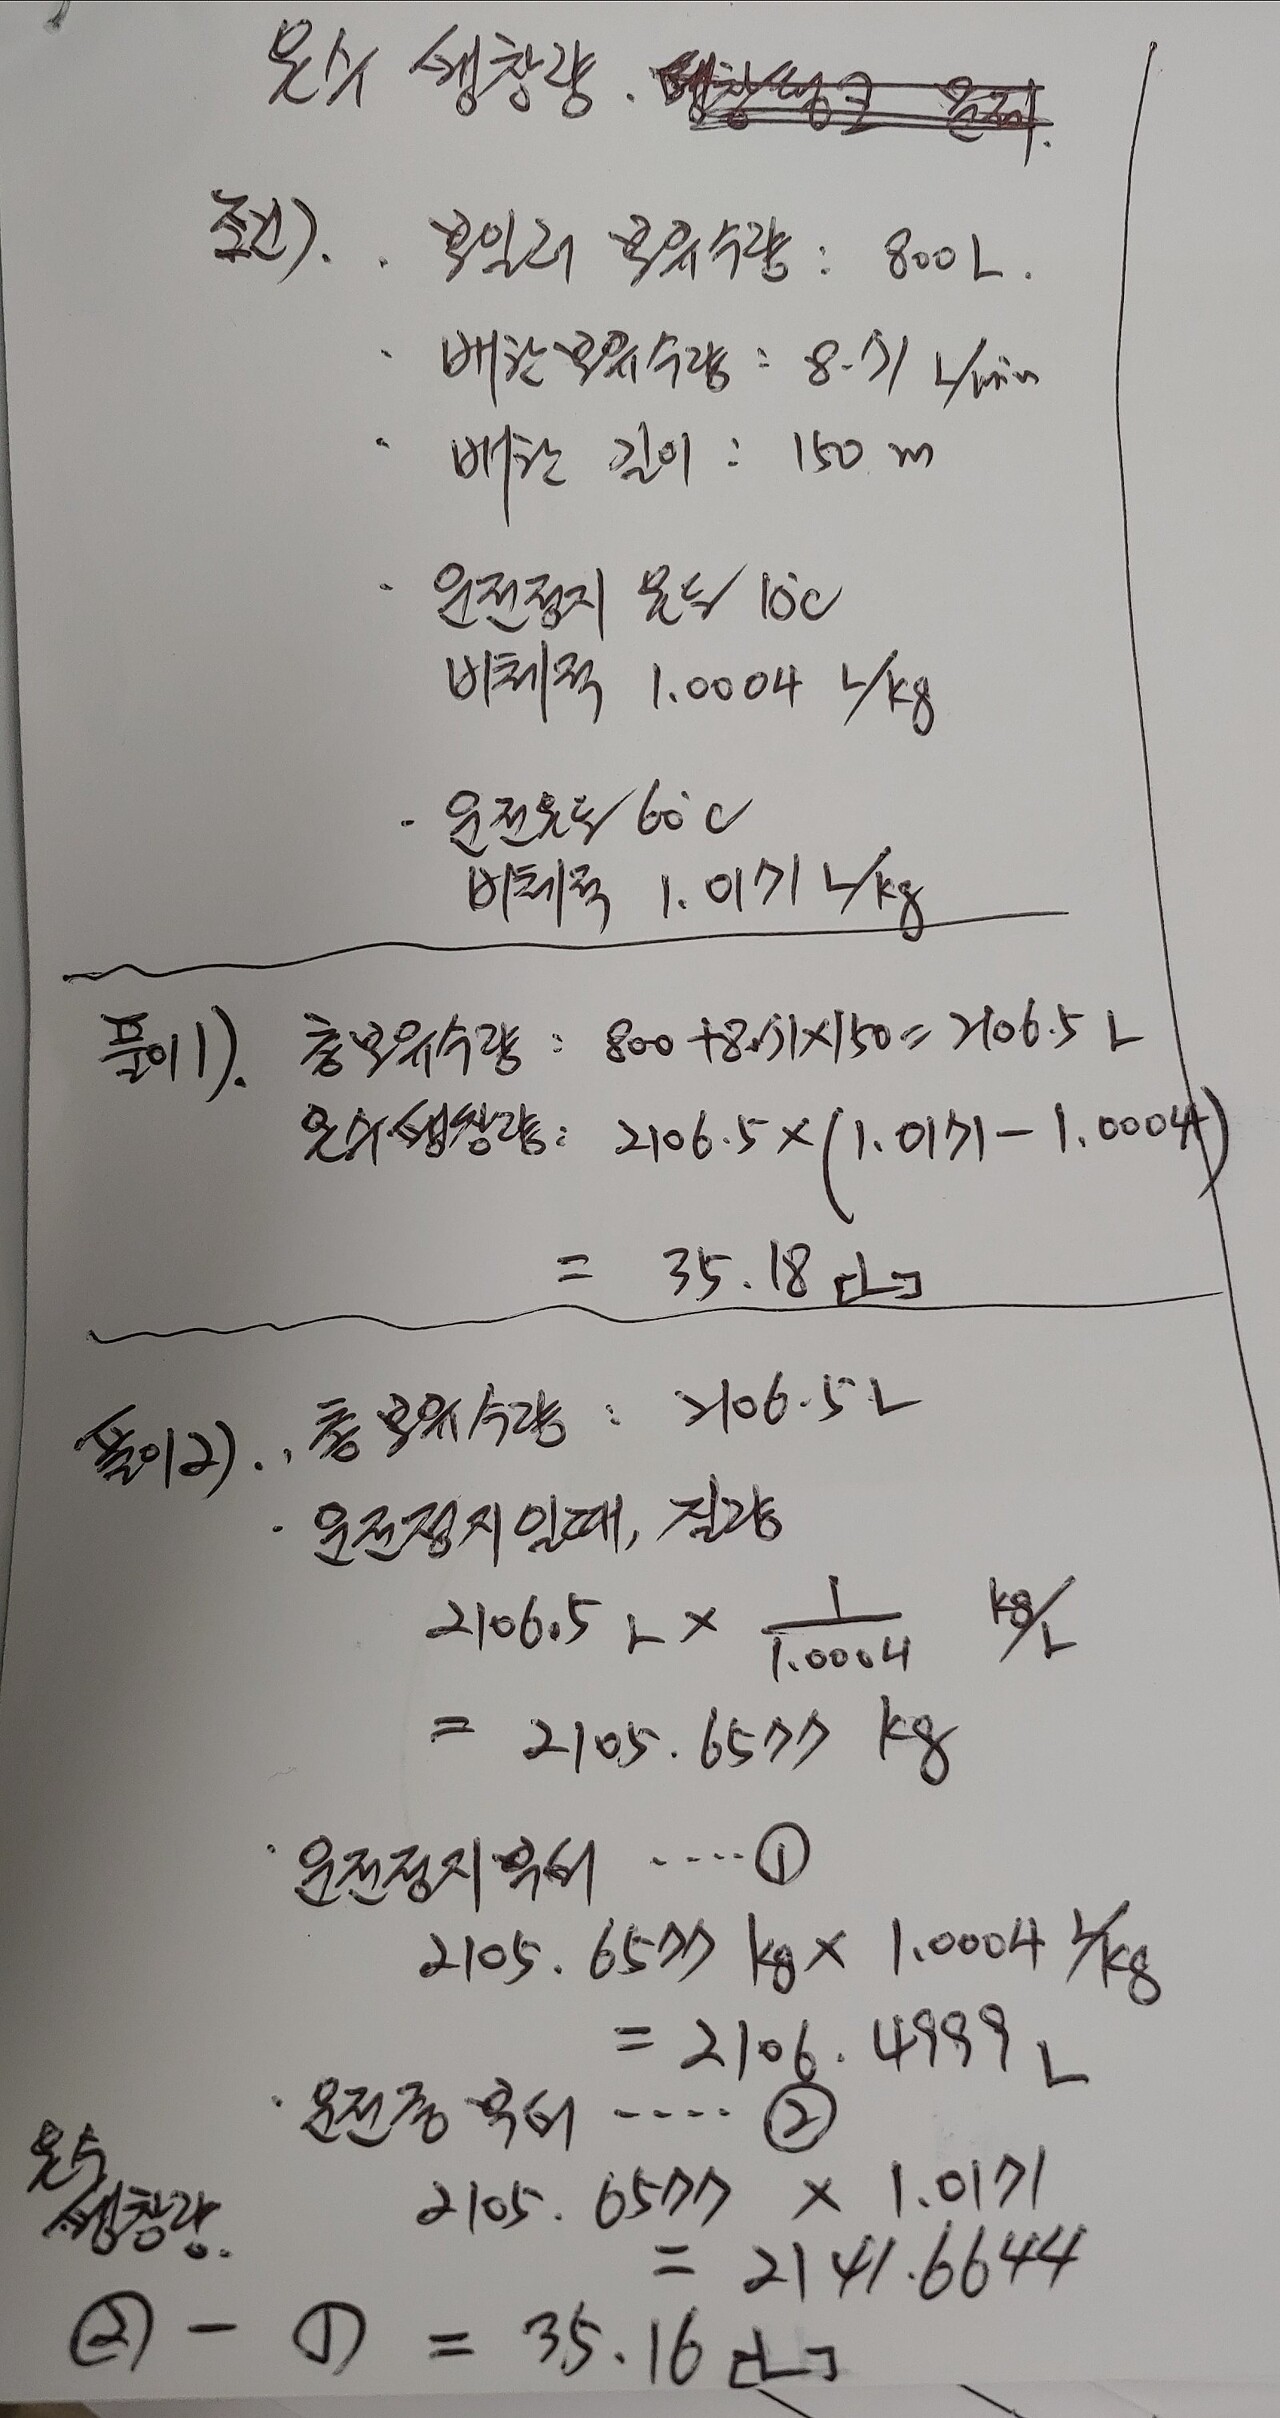 온수 팽창량.
조건). · 보일러 보유수량 : 800 L.
· 배관보유수량 : 8.71 L/min
· 배관 길이 : 150 m
· 운전정지 온도 10℃
비체적 1.0004 L/kg
· 운전온도 60℃
비체적 1.0171 L/kg
풀이1). 총보유수량 : 800 + 8.71×150 = 2106.5 L
온수팽창량 : 2106.5 × (1.0171 - 1.0004)
= 35.18 [L]
풀이2). · 총보유수량 : 2106.5 L
· 운전정지일때, 질량
2106.5 L × 1/1.0004 kg/L
= 2105.6577 kg
· 운전정지부피 ····①
2105.6577 kg × 1.0004 L/kg
= 2106.4999 L
· 운전중 부피 ---- ②
2105.6577 × 1.0171
= 2141.6644
온수
팽창량.
② - ① = 35.16 [L]